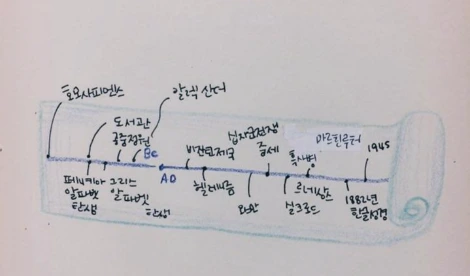 호모사피엔스
도서관
공중정원
알렉산더
BC
AD
페니키아
알파벳
탄생
그리스
알파벳
탄생
비잔틴제국
헬레니즘
십자군전쟁
중세
흑사병
르네상스
실크로드
마르틴루터
1882년
한글성경
1945